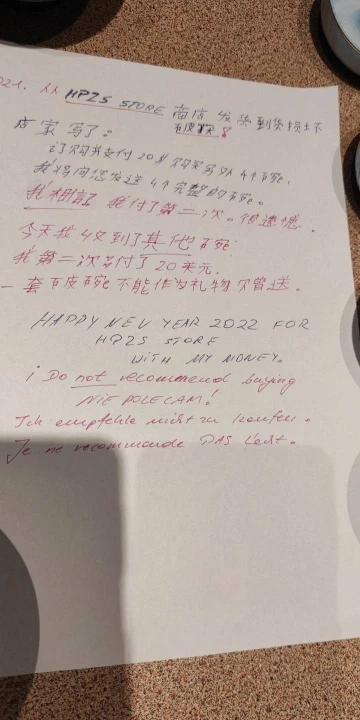 021. 从 HPZS STORE 商店 发货到货损坏
店家 写了: 玻璃 8
订购并支付 20 购买另外 4个
我将向您发送 4个完整的
我相信了 我付了第二次。很遗憾.
今天我 收到了其他
我第二次多付了 20 美元.
一套 不能作为礼物 赠送.
HAPPY NEW YEAR 2022 FOR
HPZS STORE
WITH MY MONEY.
i Do not recommend buying
NIE POLECAM!
Ich empfehle nicht zu kaufen.
Je ne recommande PAS L'ext.